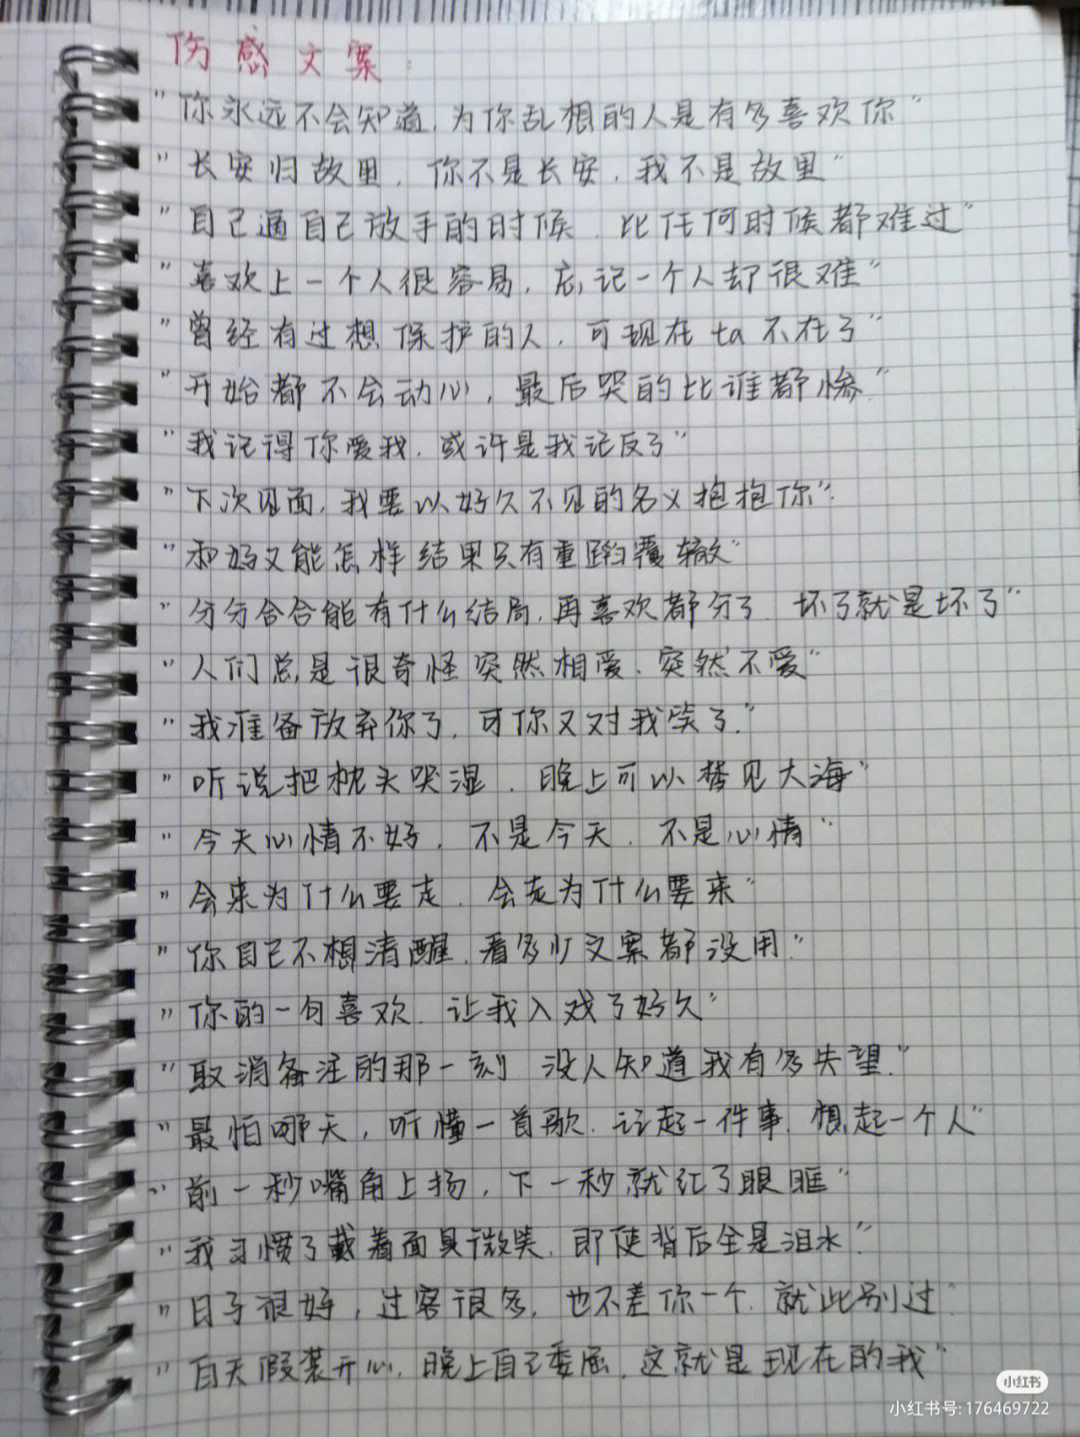 伤感文案：
"你永远不会知道，为你乱想的人是有多喜欢你"
"长安归故里，你不是长安，我不是故里"
"自己逼自己放手的时候，比任何时候都难过"
"喜欢上一个人很容易，忘记一个人却很难"
"曾经有过想保护的人，可现在ta不在了"
"开始都不会动心，最后哭的比谁都惨"
"我记得你爱我，或许是我记反了"
"下次见面，我要以好久不见的名义抱抱你"
"和好又能怎样结果只有重蹈覆辙"
"分分合合能有什么结局，再喜欢都分了，坏了就是坏了"
"人们总是很奇怪突然相爱，突然不爱"
"我准备放弃你了，可你又对我笑了"
"听说把枕头哭湿，晚上可以梦见大海"
"今天心情不好，不是今天，不是心情"
"会来为什么要走，会走为什么要来"
"你自己不想清醒，看多少文案都没用"
"你的一句喜欢，让我入戏了好久"
"取消备注的那一刻 没人知道我有多失望"
"最怕哪天，听懂一首歌，记起一件事，想起一个人"
"前一秒嘴角上扬，下一秒就红了眼眶"
"我习惯了戴着面具微笑，即使背后全是泪水"
"日子很好，过客很多，也不差你一个，就此别过"
"白天假装开心，晚上自己委屈，这就是现在的我"
小红书
小红书号：176469722